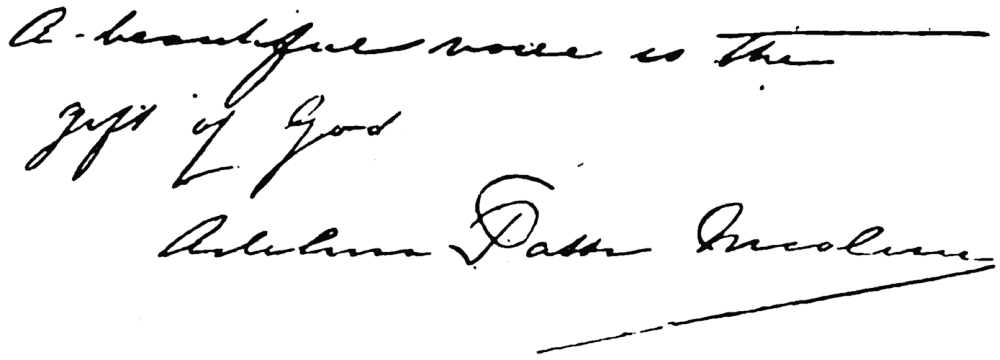 A beautiful voice is the
gift of God
Adelina Patti Nicolini